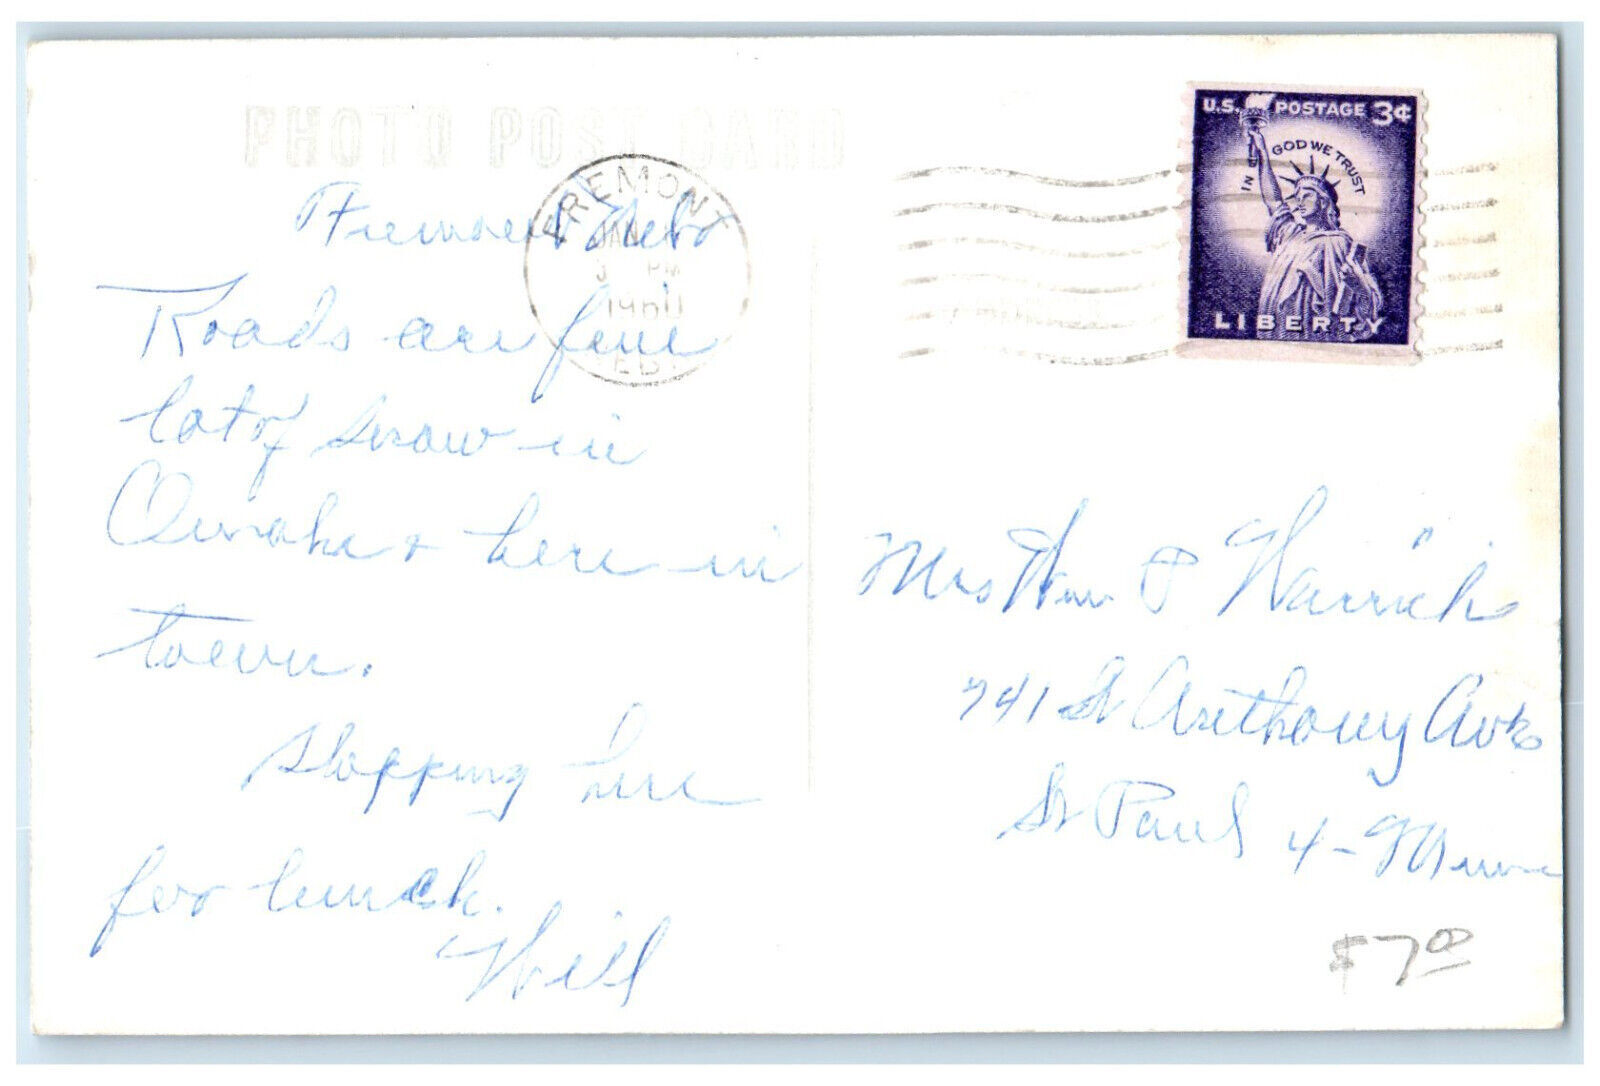 PHOTO POST CARD
Fremont Nebr
Roads are fine
lot of snow in
Omaha & here in
town.
Stopping here
for lunch.
Will
FREMONT
JAN
3 PM
1960
NEBR
U.S. POSTAGE 3¢
IN GOD WE TRUST
LIBERTY
Mrs Wm P Warrick
741 St Anthony Ave
St Paul 4 - Minn
$7.00